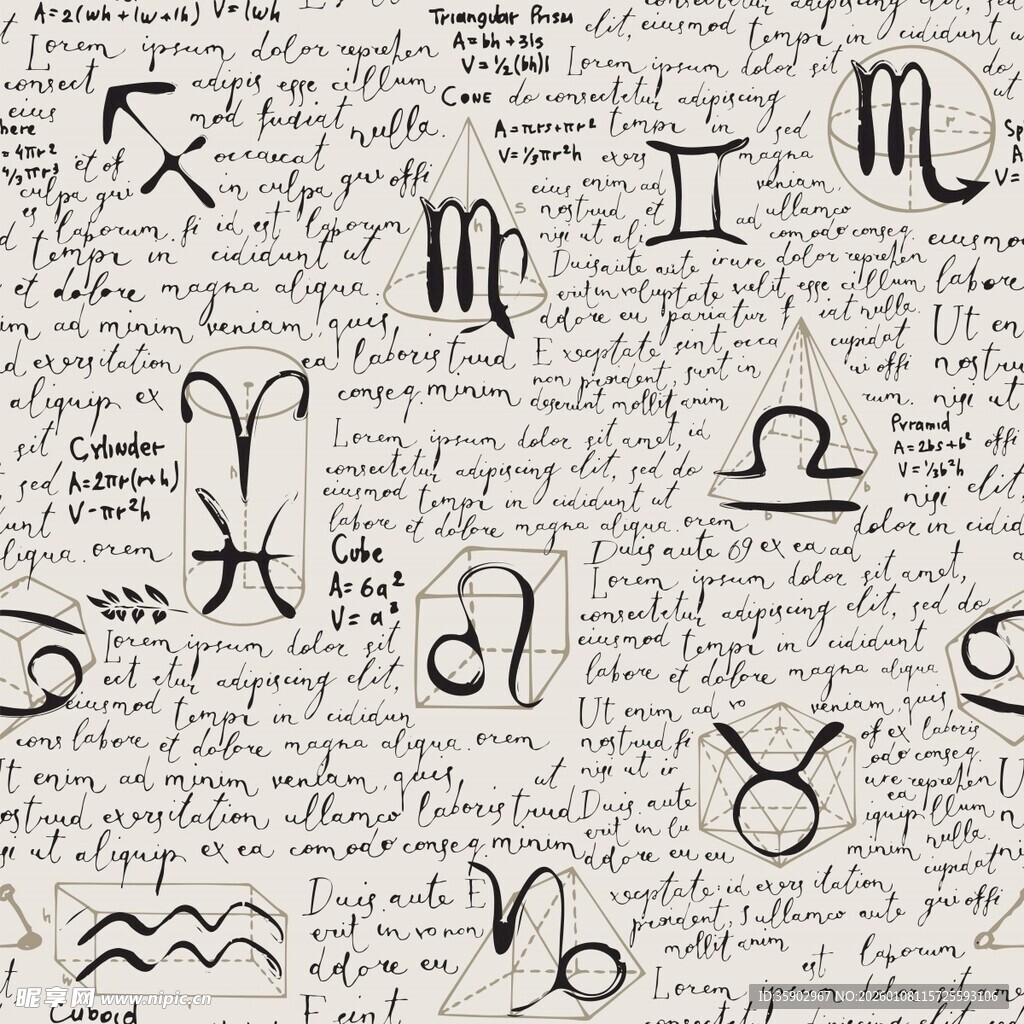 A=2(wh+lw+lh) V=lwh
Triangular Prism
A=bh+3ls
V=½(bh)l
Lorem ipsum dolor reprehen
consect adipis esse cillum
eius mod fugiat nulla.
Cone do consectetur adipiscing
A=πrs+πr² tempr in sed
V=⅓πr²h exers magna
elit, eiusmod tempr in cididunt u
Lorem ipsum dolor sit do
here
=4πr² et of occaecat
4/3πr³
culpa qui in culpa qui offi
es laborum fi id est laborum
tempr in cididunt ut
et dolore magna aliqua.
im ad minim veniam, quis,
d exersitation ea laboris trud
aliquip ex conseq minim
eius enim ad veniam,
nostrud et ad ullamco
nisi ut ali comodo conseq. eiusmo
Duis aute aute irure dolor reprehen
erit in voluptate velit esse cillum labore
dolore eu pariatur f iat nulla. Ut en
Exceptate sint occa cupidat nostru
non proident, sunt in ui offi
deserunt mollit anim rum. nisi ut
Sp
A
V=
s
h
r
Pyramid
A=2bs+b²
V=⅓b²h
offi
nisi elit,
s
b
b
sit
Cylinder
sed A=2πr(r+h)
V-πr²h
unt
liqua. orem
h
Lorem ipsum dolor sit amet, id
consectetur adipiscing elit, sed do
eiusmod tempr in cididunt ut
labore et dolore magna aliqua. orem dolor in cidid
Cube
A=6a²
V=a³
Duis aute 69 ex ea ad
Lorem ipsum dolor sit amet,
consectetur adipiscing elit, sed do
eiusmod tempr in cididunt
labore et dolore magna aliqua
Lorem ipsum dolor sit
ect etur adipiscing elit,
eiusmod tempr in cididun
cons labore et dolore magna aliqua. orem
Ut enim ad minim veniam, quis, ut
ostrud exersitation ullamco laboris trud
si ut aliquip ex ea comodo conseq. minim
Ut enim ad vo veniam, quis,
nostrud fi of ex laboris
nisi ut ir odo conseq.
Duis aute ure reprehen U
ea
erit in lu iquip illum
dolore eu eu nulla.
minim cupidat
h
w
Duis aute E
erit in vo non
dolore eu
E sint
Cuboid
xceptate: id exers itation
proident, s ullamco aute qui offi
mollit anim
est laborum
Lorem ipsum dolor sit amet,
昵享网 www.nipic.cn
ID:35902967 NO:20260108115725593106